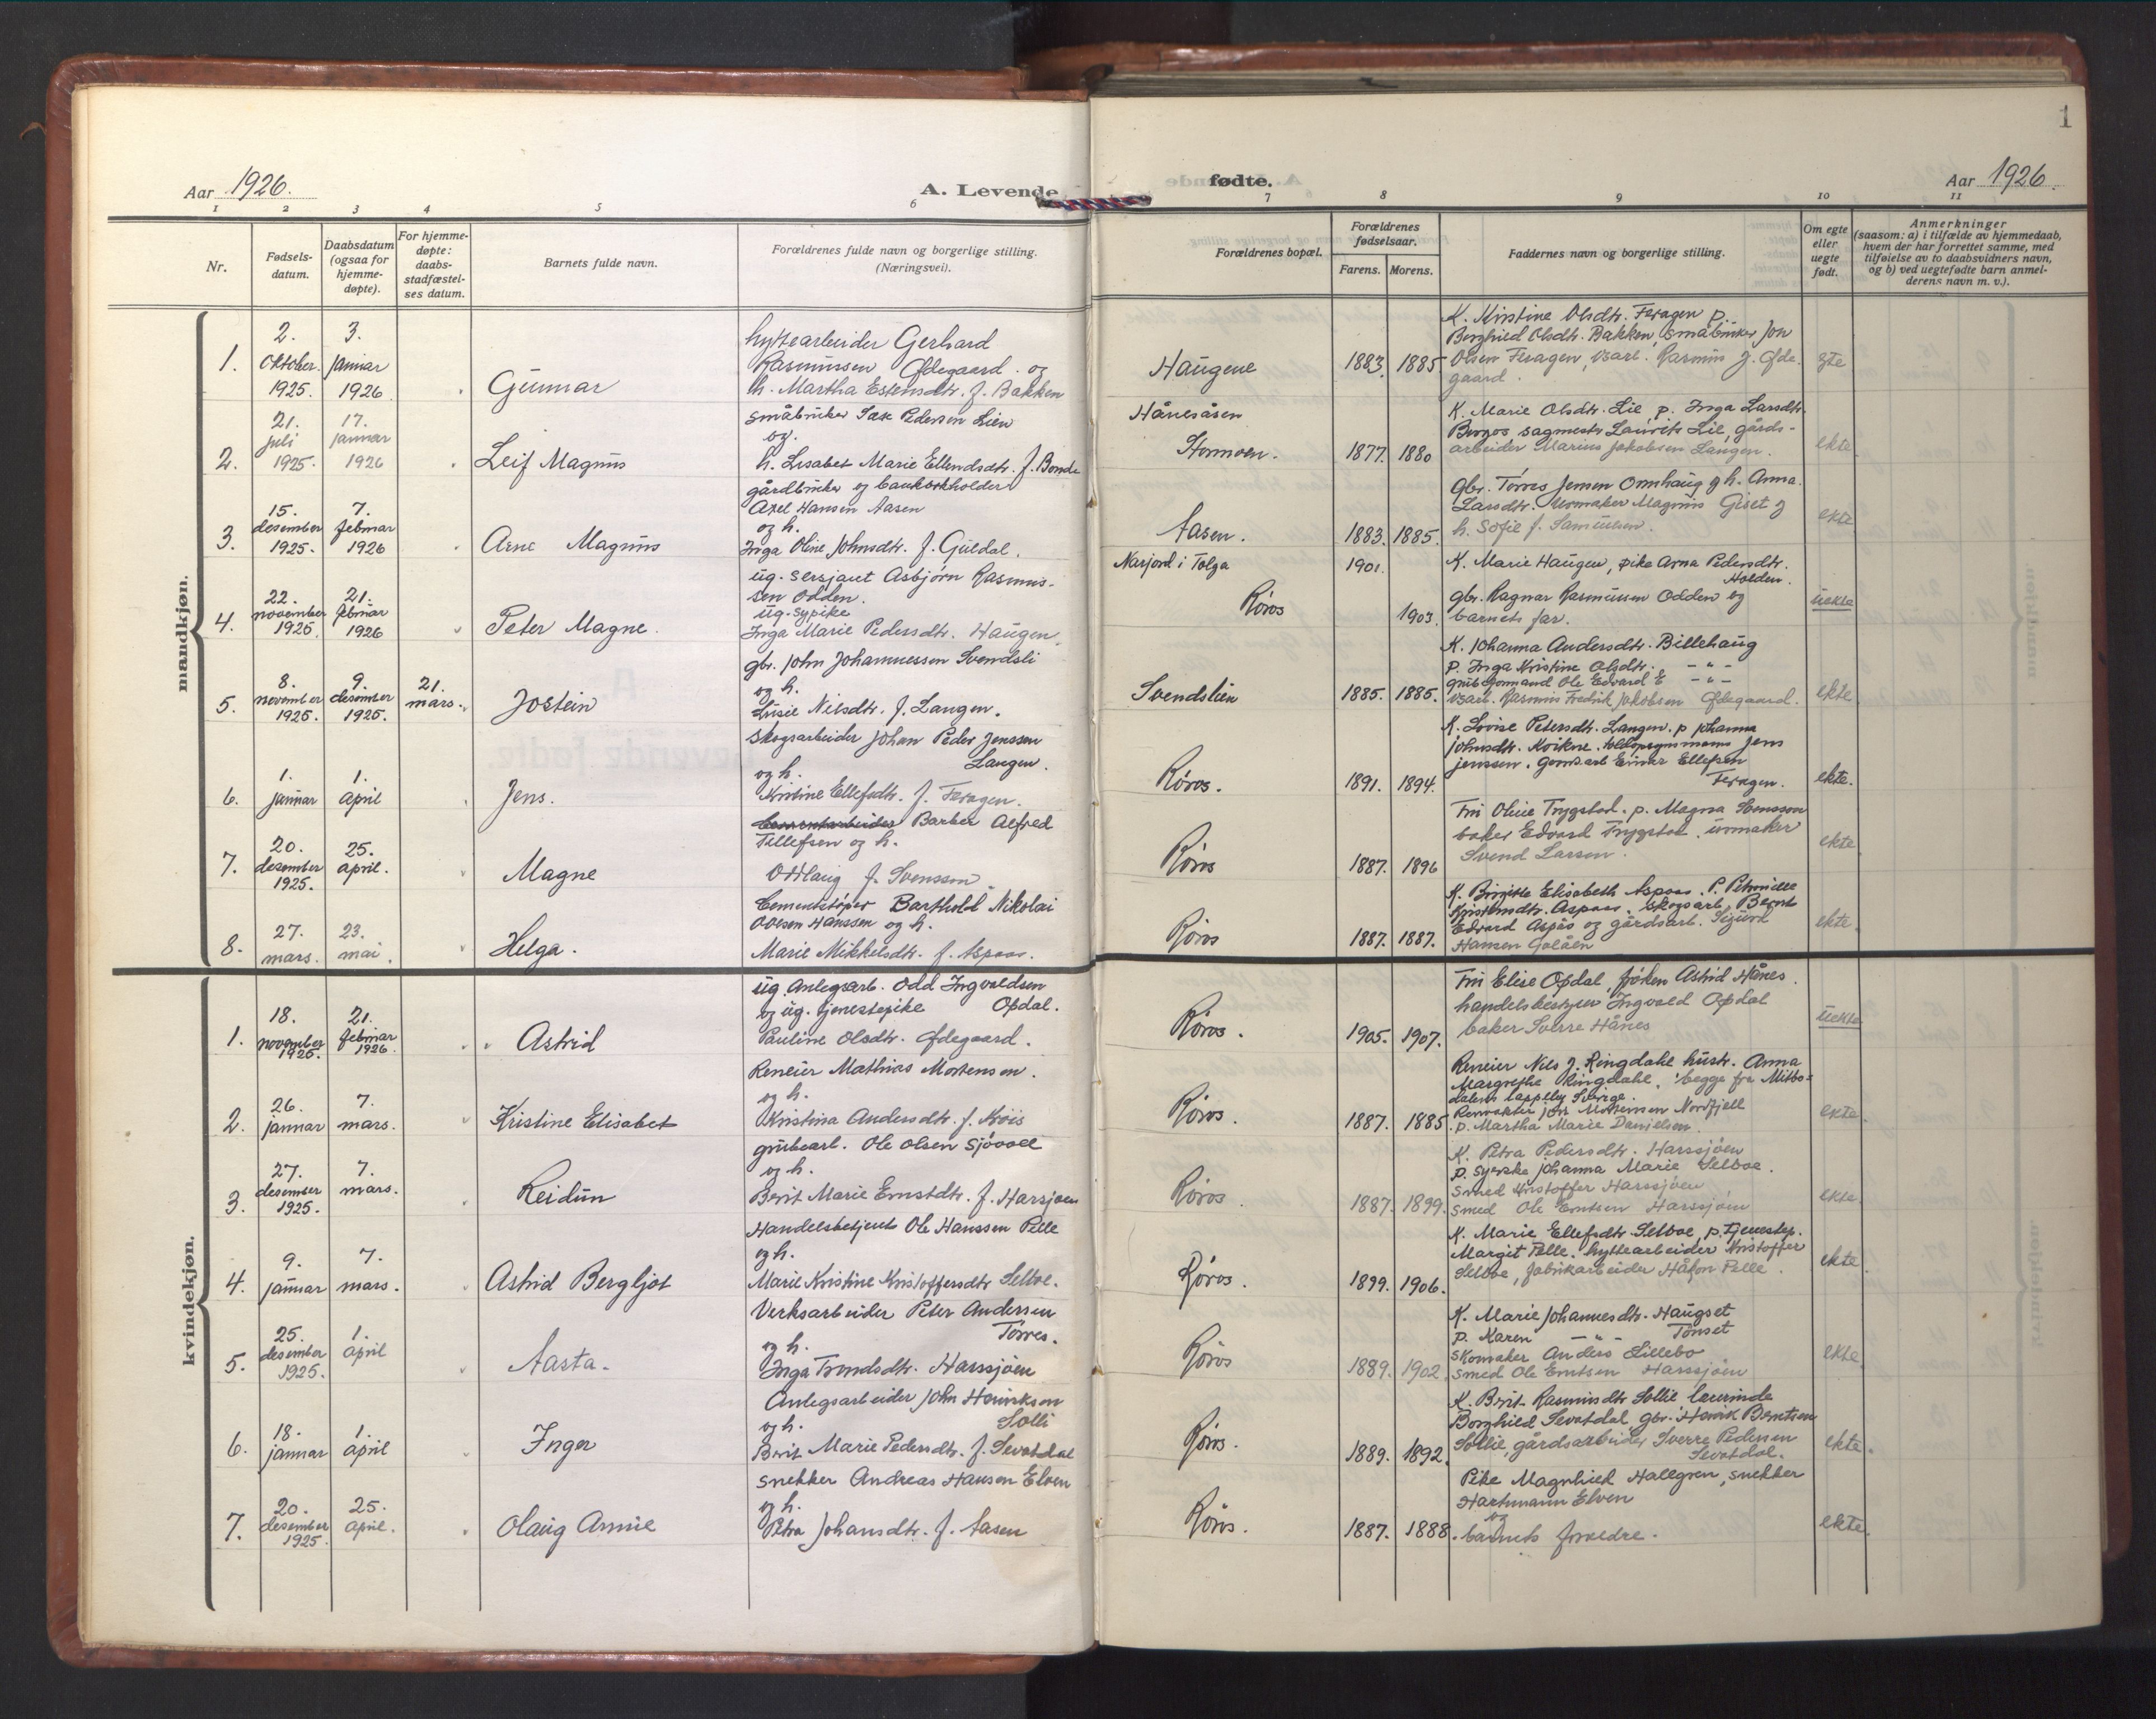 Aar 1926.
A. Levende
1 2 3 4 5 6
Nr.
Fødsels-
datum.
Daabsdatum
(ogsaa for
hjemme-
døpte).
For hjemme-
døpte:
daabs-
stadfæstel-
ses datum.
Barnets fulde navn.
Forældrenes fulde navn og borgerlige stilling.
(Næringsvei).
mandkjøn.
1.
2.
oktober
1925.
3.
januar
1926
Gunnar
hyttearbeider Gerhard
Rasmussen Ødegaard og
h. Martha Estensdtr. f. Bakken
2.
21.
juli
1925.
17.
januar
1926
Leif Magnus
småbruker Isak Pedersen Lien
og
h. Lisabet Marie Ellendsdtr. f. Bonde
3.
15.
desember
1925.
7.
februar
1926
Arne Magnus
gårdbruker og bankbokholder
Axel Hansen Aasen
og h.
Inga Oline Johnsdtr. f. Guldal.
4.
22.
november
1925.
21.
februar
1926
Peter Magne.
ug. sersjant Asbjørn Rasmus-
sen Odden.
ug. sypike
Inga Marie Pedersdtr. Haugen
5.
8.
november
1925.
9.
desember
1925.
21.
mars.
Jostein
gbr. John Johannessen Svendsli
og h.
Lusie Nilsdtr. f. Langen.
6.
1.
januar
1.
april
Jens.
Skogsarbeider Johan Peder Jenssen
Langen.
og h.
Kristine Ellefsdtr. f. Feragen.
7.
20.
desember
1925.
25.
april.
Magne
Barber Alfred
Tellefsen og h.
Oddlaug f. Svensson
8.
27.
mars.
23.
mai.
Helga.
Cementstøper Barthold Nikolai
Ovesen Hanssen og h.
Marie Mikkelsdtr. f. Aspaas.
kvindekjøn.
1.
18.
november
1925.
21.
februar
1926.
Astrid
ug. Anlegsarb. Odd Ingvaldsen
og ug. tjenestepike Opdal.
Pauline Olsdtr. Ødegaard.
2.
26.
januar
7.
mars.
Kristine Elisabet
Reneier Mathias Mortenson.
og h.
Kristina Andersdtr. f.
3.
27.
desember
1925.
7.
mars.
Reidun
grubearb. Ole Olsen Sjøvoll
og h.
Berit Marie Ernstdtr. f. Harsjøen
4.
9.
januar
7.
mars.
Astrid Bergljot
Handelsbetjent Ole Hanssen Pelle
og h.
Marie Kristine Kristoffersdtr Selboe.
5.
25.
desember
1925.
1.
april
Aasta.
Verksarbeider Peter Andersen
Torres.
og h.
Inga Trondsdtr. Harssjøen
6.
18.
januar
1.
april
Inger
Anlegsarbeider John Henriksen
og h. Solli
Berit Marie Pedersdtr. f. Sevatdal
7.
20.
desember
1925.
25.
april.
Olaug Annie
Snekker Andreas Hansen Elven
og h.
Petra Johansdtr. f. Aasen
fødte.
Aar 1926.
1
7 8 9 10 11
Forældrenes bopæl.
Forældrenes
fødselsaar.
Farens. Morens.
Faddernes navn og borgerlige stilling.
Om egte
eller
uegte
født.
Anmerkninger
(saasom: a) i tilfælde av hjemmedaab,
hvem der har forrettet samme, med
tilføielse av to daabsvidners navn,
og b) ved uegtefødte barn anmel-
derens navn m. v.).
Haugene
1883. 1885
K. Kristine Olsdtr. Feragen p.
Borghild Olsdtr. Bakken, småbruker Jon
Olsen Feragen, Rasmus J. Øde-
gaard.
egte
Hånesåsen
Stormoen.
1877. 1880
K. Marie Olsdtr. Lie, p. Inga Larsdtr.
Borgos sagmestr Laurits Lie, gårds-
arbeider Marius Jakobsen Langen.
ekte
Aasen.
1883. 1885.
gbr. Torres Jensen Ormhaug og h. Anna
Larsdtr. Urmaker Magnus Giset og
h. Sofie f. Samuelsen.
ekte
Narjord i Tolga
Röros
1901.
1903.
K. Marie Haugen, pike Arna Pedersdtr.
Holden.
gbr. Ragnar Rasmussen Odden og
barnets far.
uekte
Svendslien
1885. 1885.
K. Johanna Andersdtr. Billehaug
p. Inga Kristine Olsdtr. - " -
grubeformand Ole Edvard E - " -
Rasmus Fredrik Jakobsen Ødegaard.
ekte
Röros.
1891. 1894.
K. Lovise Petersdtr. Langen. p Johanna
Johnsdtr. Koikne. Jens
Jenssen. Einar Ellefsen
Feragen.
ekte.
Röros
1887. 1896
Fru Oline Trygstad. p. Magna Svensson
baker Edvard Trygstad. urmaker
Svend Larsen.
ekte
Röros
1887. 1887.
K. Birgitte Elisabeth Aspaas. P. Petronille
Kristensdtr. Aspaas. Skogsarb. Bernt
Edvard Aspås og gårdsarb. Sigurd
Hansen Galåen
ekte.
Röros.
1905. 1907.
Fru Elise Opdal, frøken Astrid Hånes.
handelsbestyrer Ingvald Opdal
baker Sverre Hånes
uekte
Röros.
1887. 1885
Reneier Nils J. Ringdahl hustr. Anna
Margrethe Ringdahl, begge fra Mitbo-
dalens lappeby Sverige.
Renvokter Mortensen Nordfjell
p. Martha Marie Danielsen.
ekte
Röros.
1887. 1899.
K. Petra Pedersdtr. Harssjøen
p. syerske Johanna Marie Selboe.
Smed Kristoffer Harssjøen
Smed Ole Erntsen Harssjøen
ekte
Röros.
1899. 1906.
K. Marie Ellefsdtr. Selboe, p. tjenestep.
Margit Pelle. hyttearbeider Kristoffer
Selboe, fabrikarbeider Håkon Pelle.
ekte
Röros
1889. 1902
K. Marie Johannesdtr. Haugset
p. Karen - " - Tønset
Skomaker Anders Lillebo
Smed Ole Erntsen Harssjøen
ekte
Röros.
1889. 1892.
K. Berit Rasmusdtr Sollie lærerinde
Borghild Sevatdal gbr. Henrik Berntsen
Sollie, gårdsarbeider Sverre Pedersen
Sevatdal.
ekte.
Röros.
1887. 1888.
Pike Magnhild Hallgren, snekker
Hartmann Elven
og
barnets foreldre.
ekte.